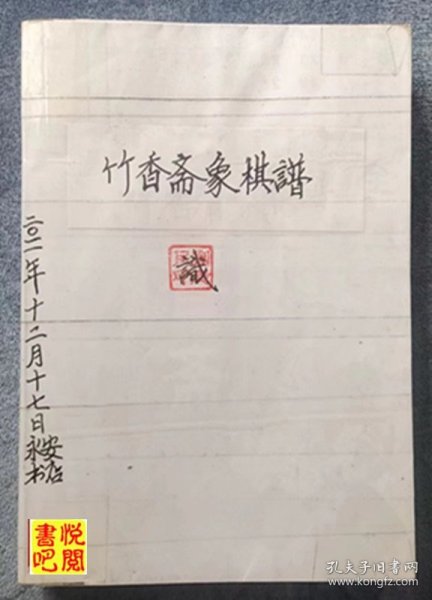 竹香斋象棋譜
識
二〇二一年十二月十七日永安书店
悦閲
書吧
孔夫子旧书网
www.kongfz.com